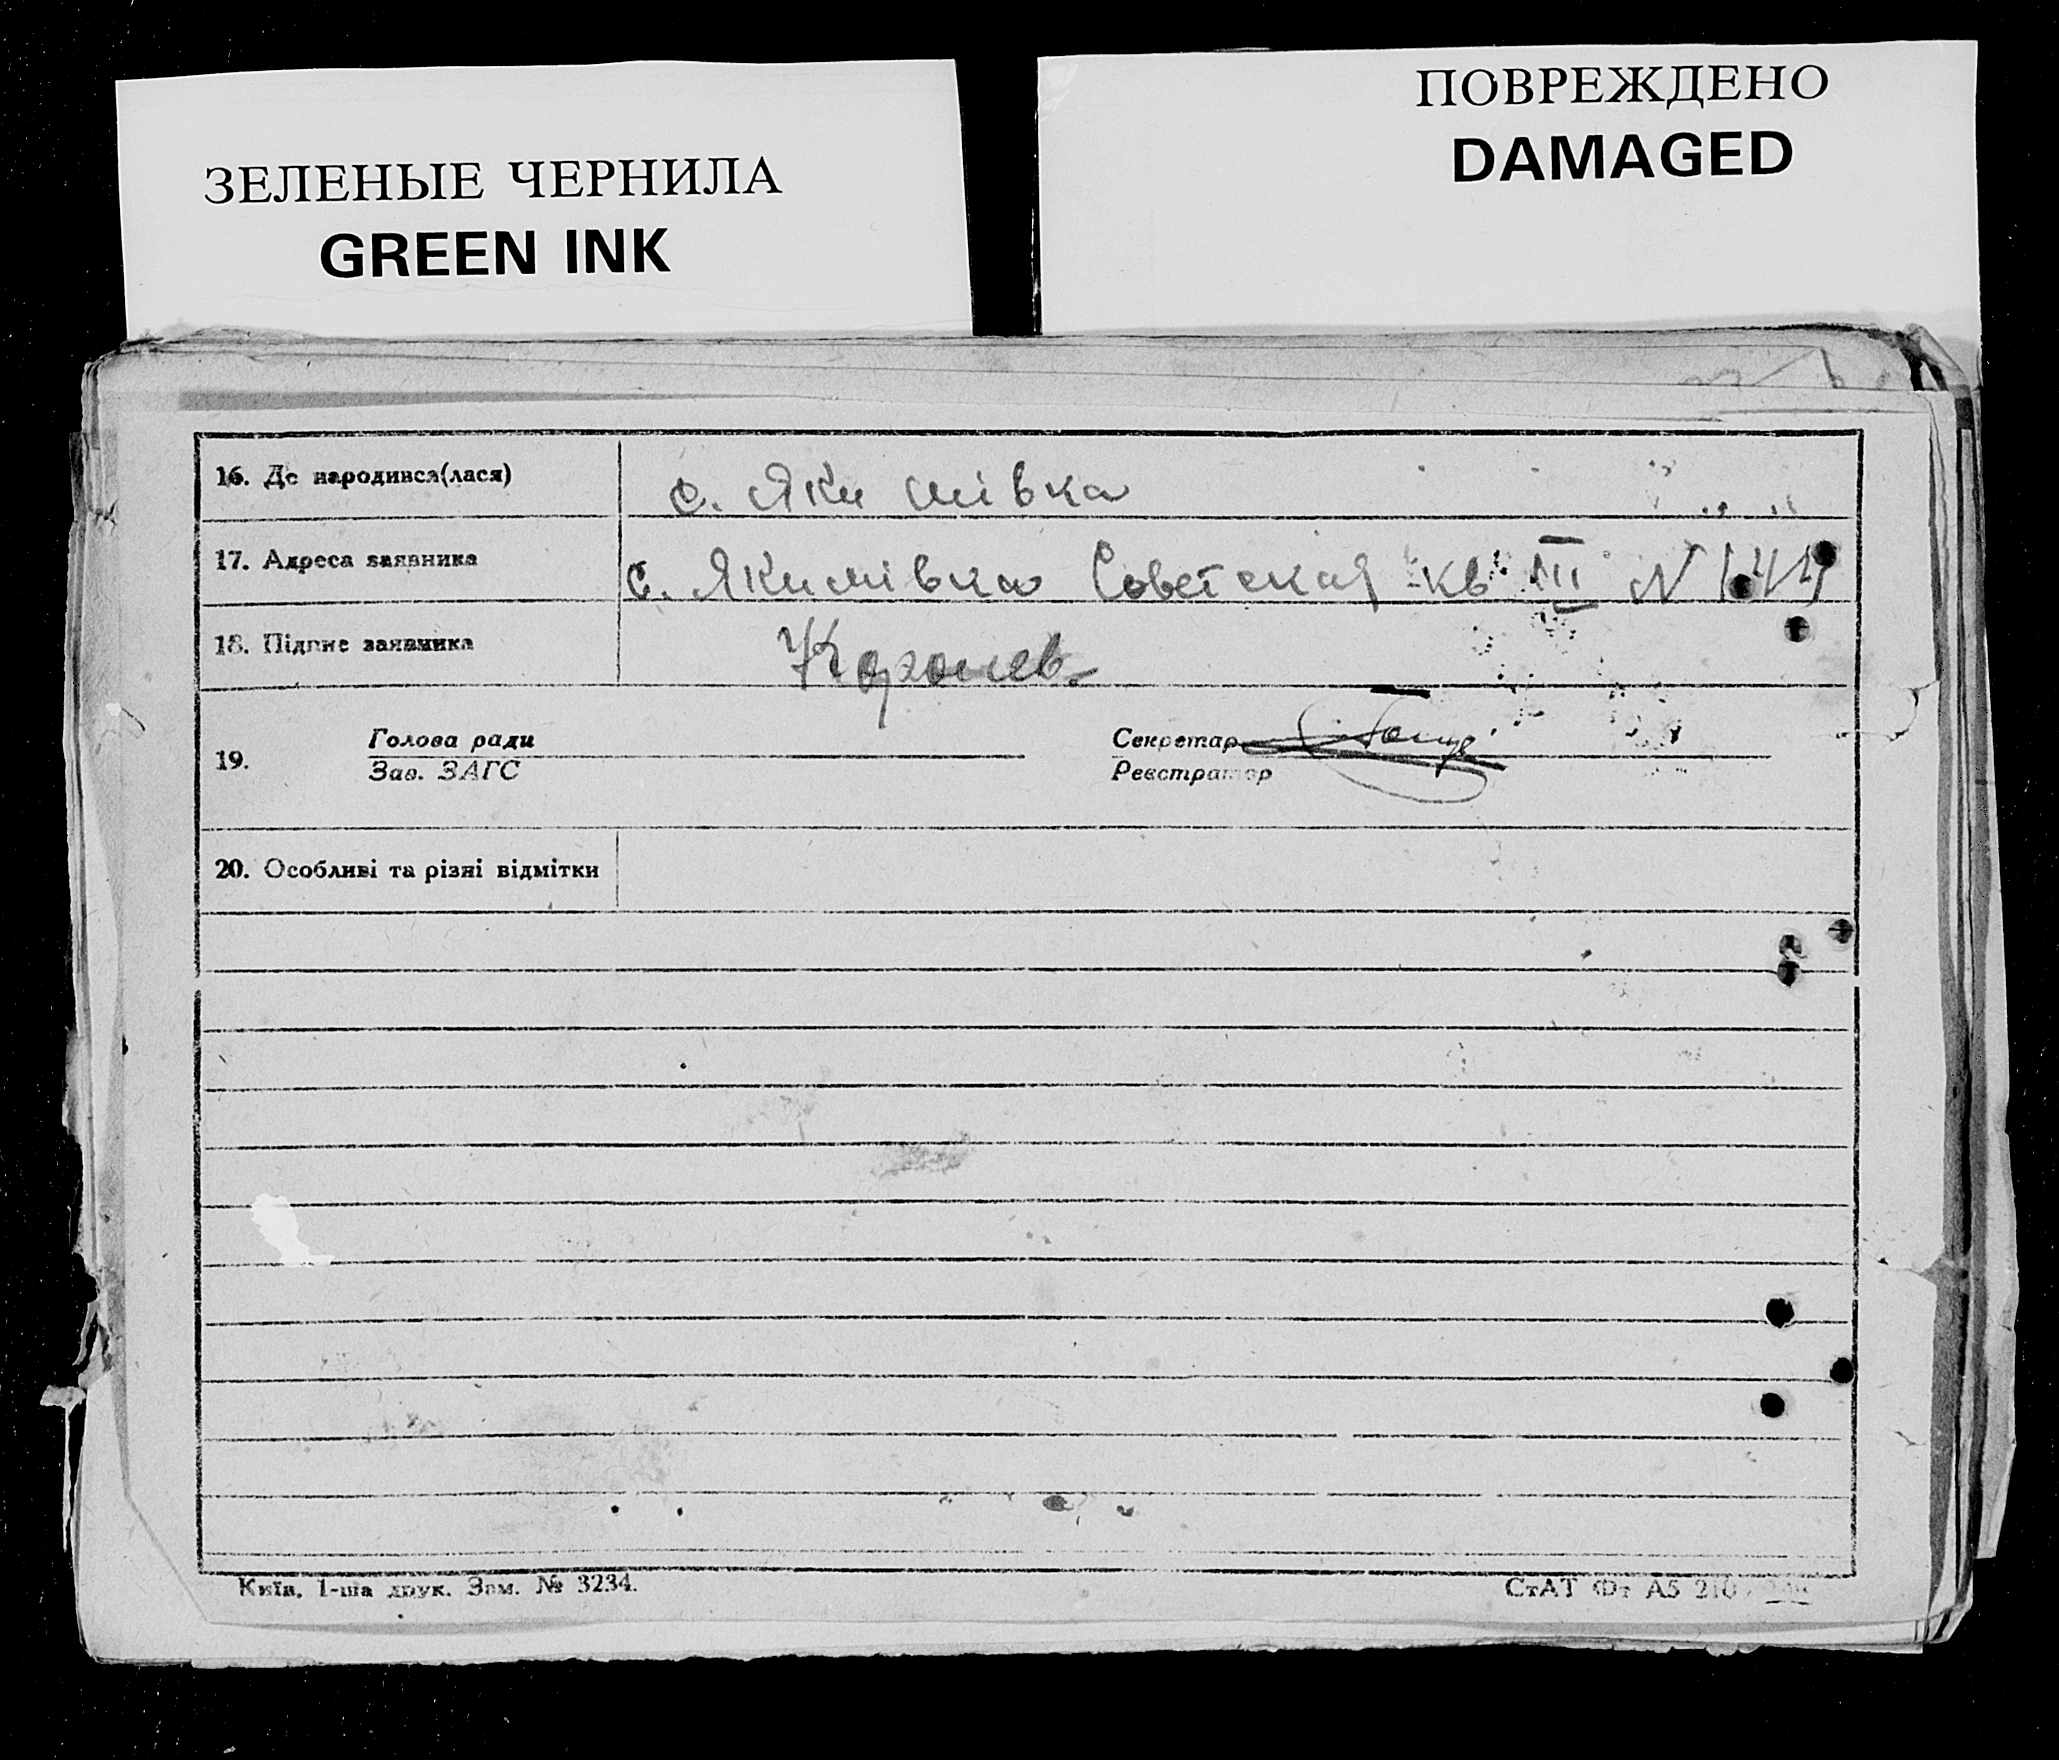 ПОВРЕЖДЕНО
DAMAGED
ЗЕЛЕНЫЕ ЧЕРНИЛА
GREEN INK
16. Де народився(лася) с. Якимівка
17. Адреса заявника с. Якимівка Советская кв III N
18. Підпис заявника
19. Голова ради Секретар
Зав. ЗАГС Реєстратор
20. Особливі та різні відмітки
Київ, 1-ша друк. Зам. № 3234. СтАТ Фт А5 210